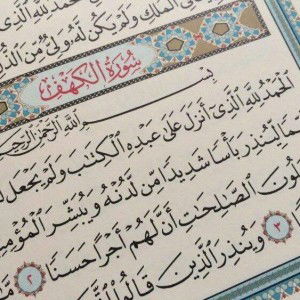 ٱلْمُلْكِ وَلَمْ يَكُن لَّهُۥ وَلِىٌّ مِّنَ ٱلذُّ
سُورَةُ الكَهْفِ
بِسْمِ ٱللَّهِ ٱلرَّحْمَٰنِ ٱلرَّحِيمِ
ٱلْحَمْدُ لِلَّهِ ٱلَّذِىٓ أَنزَلَ عَلَىٰ عَبْدِهِ ٱلْكِتَٰبَ وَلَمْ يَجْعَل لَّ
لِّيُنذِرَ بَأْسًا شَدِيدًا مِّن لَّدُنْهُ وَيُبَشِّرَ ٱلْمُؤْمِ
لُونَ ٱلصَّٰلِحَٰتِ أَنَّ لَهُمْ أَجْرًا حَسَنًا ٢
٣ وَيُنذِرَ ٱلَّذِينَ قَالُوا۟